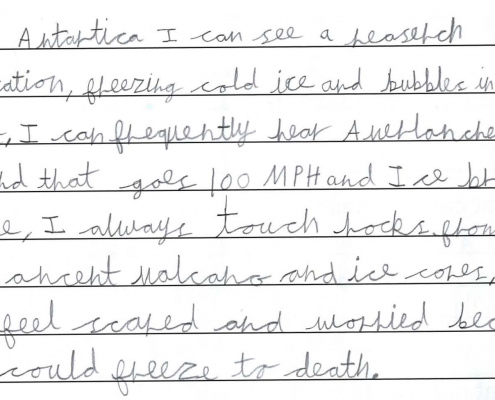 Antartica I can see a reaserch
ation, freezing cold ice and bubbles in
, I can frequently hear Averlanche
nd that goes 100 MPH and I ce br
e, I always touch rocks from
ancent valcano and ice cores,
feel scared and worried bec
could freeze to death.